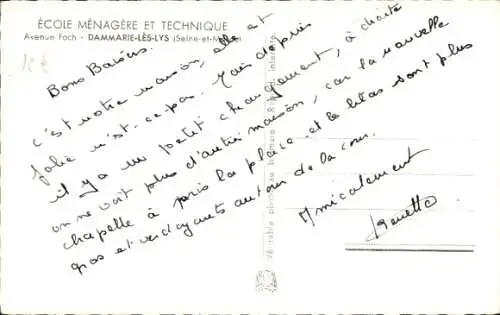 ÉCOLE MÉNAGÈRE ET TECHNIQUE
Avenue Foch - DAMMARIE-LÈS-LYS (Seine-et-Marne)
Bons Baisers.
c'est notre maison, elle est
jolie n'est-ce-pas. Mais depuis
il y a un petit changement, à droite
on ne voit plus d'autre maison, car la nouvelle
chapelle à pris la place et le lilas sont plus
gros et verdoyants autour de la cour.
Amicalement
Véritable photo au bromure Interdite